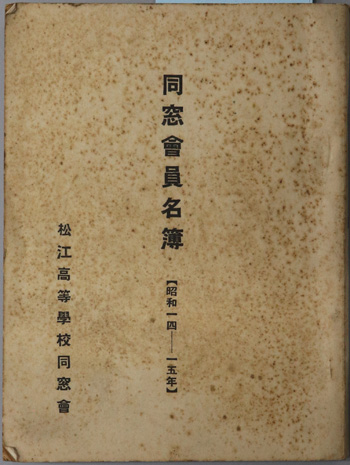 同窓會員名簿
【昭和一四――一五年】
松江高等學校同窓會